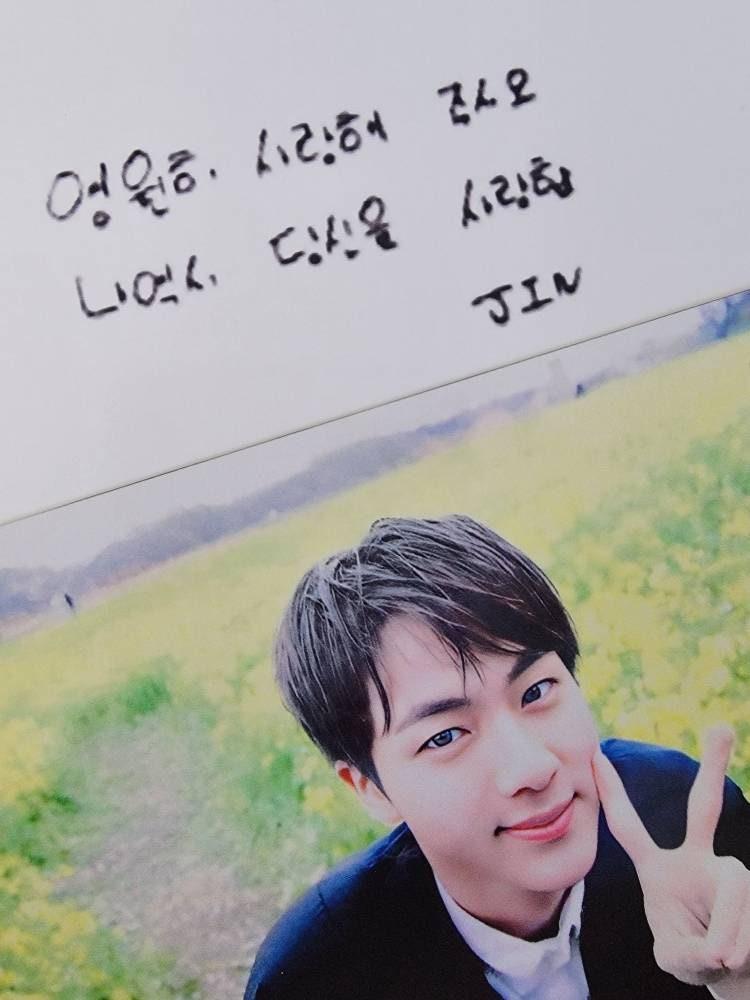 영원히, 사랑해 주시오
나 역시, 당신을 사랑함
JIN